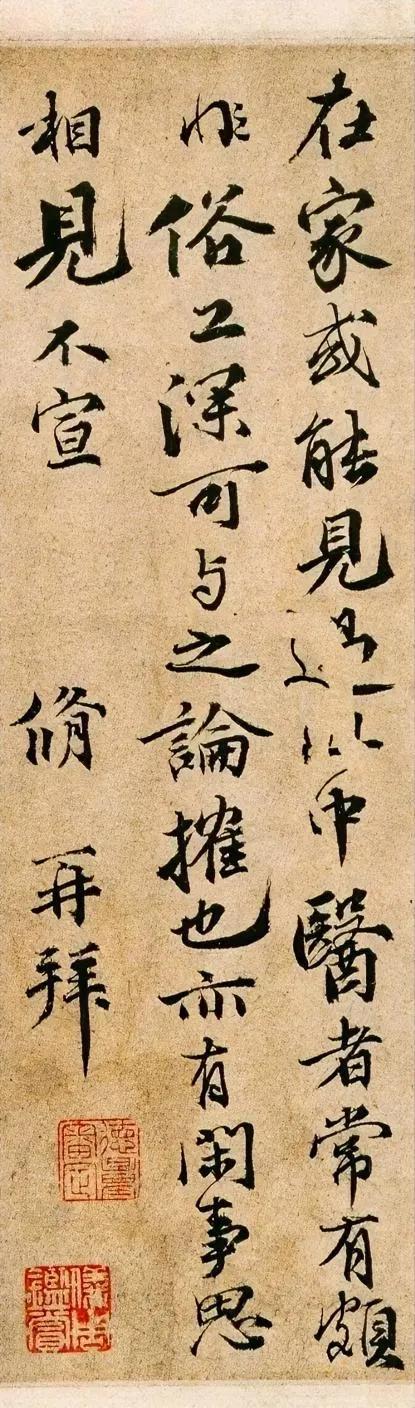 在家或能見過此中醫者常有頗
非俗工深可与之論搉也亦有閑事思
相見不宣
脩再拜